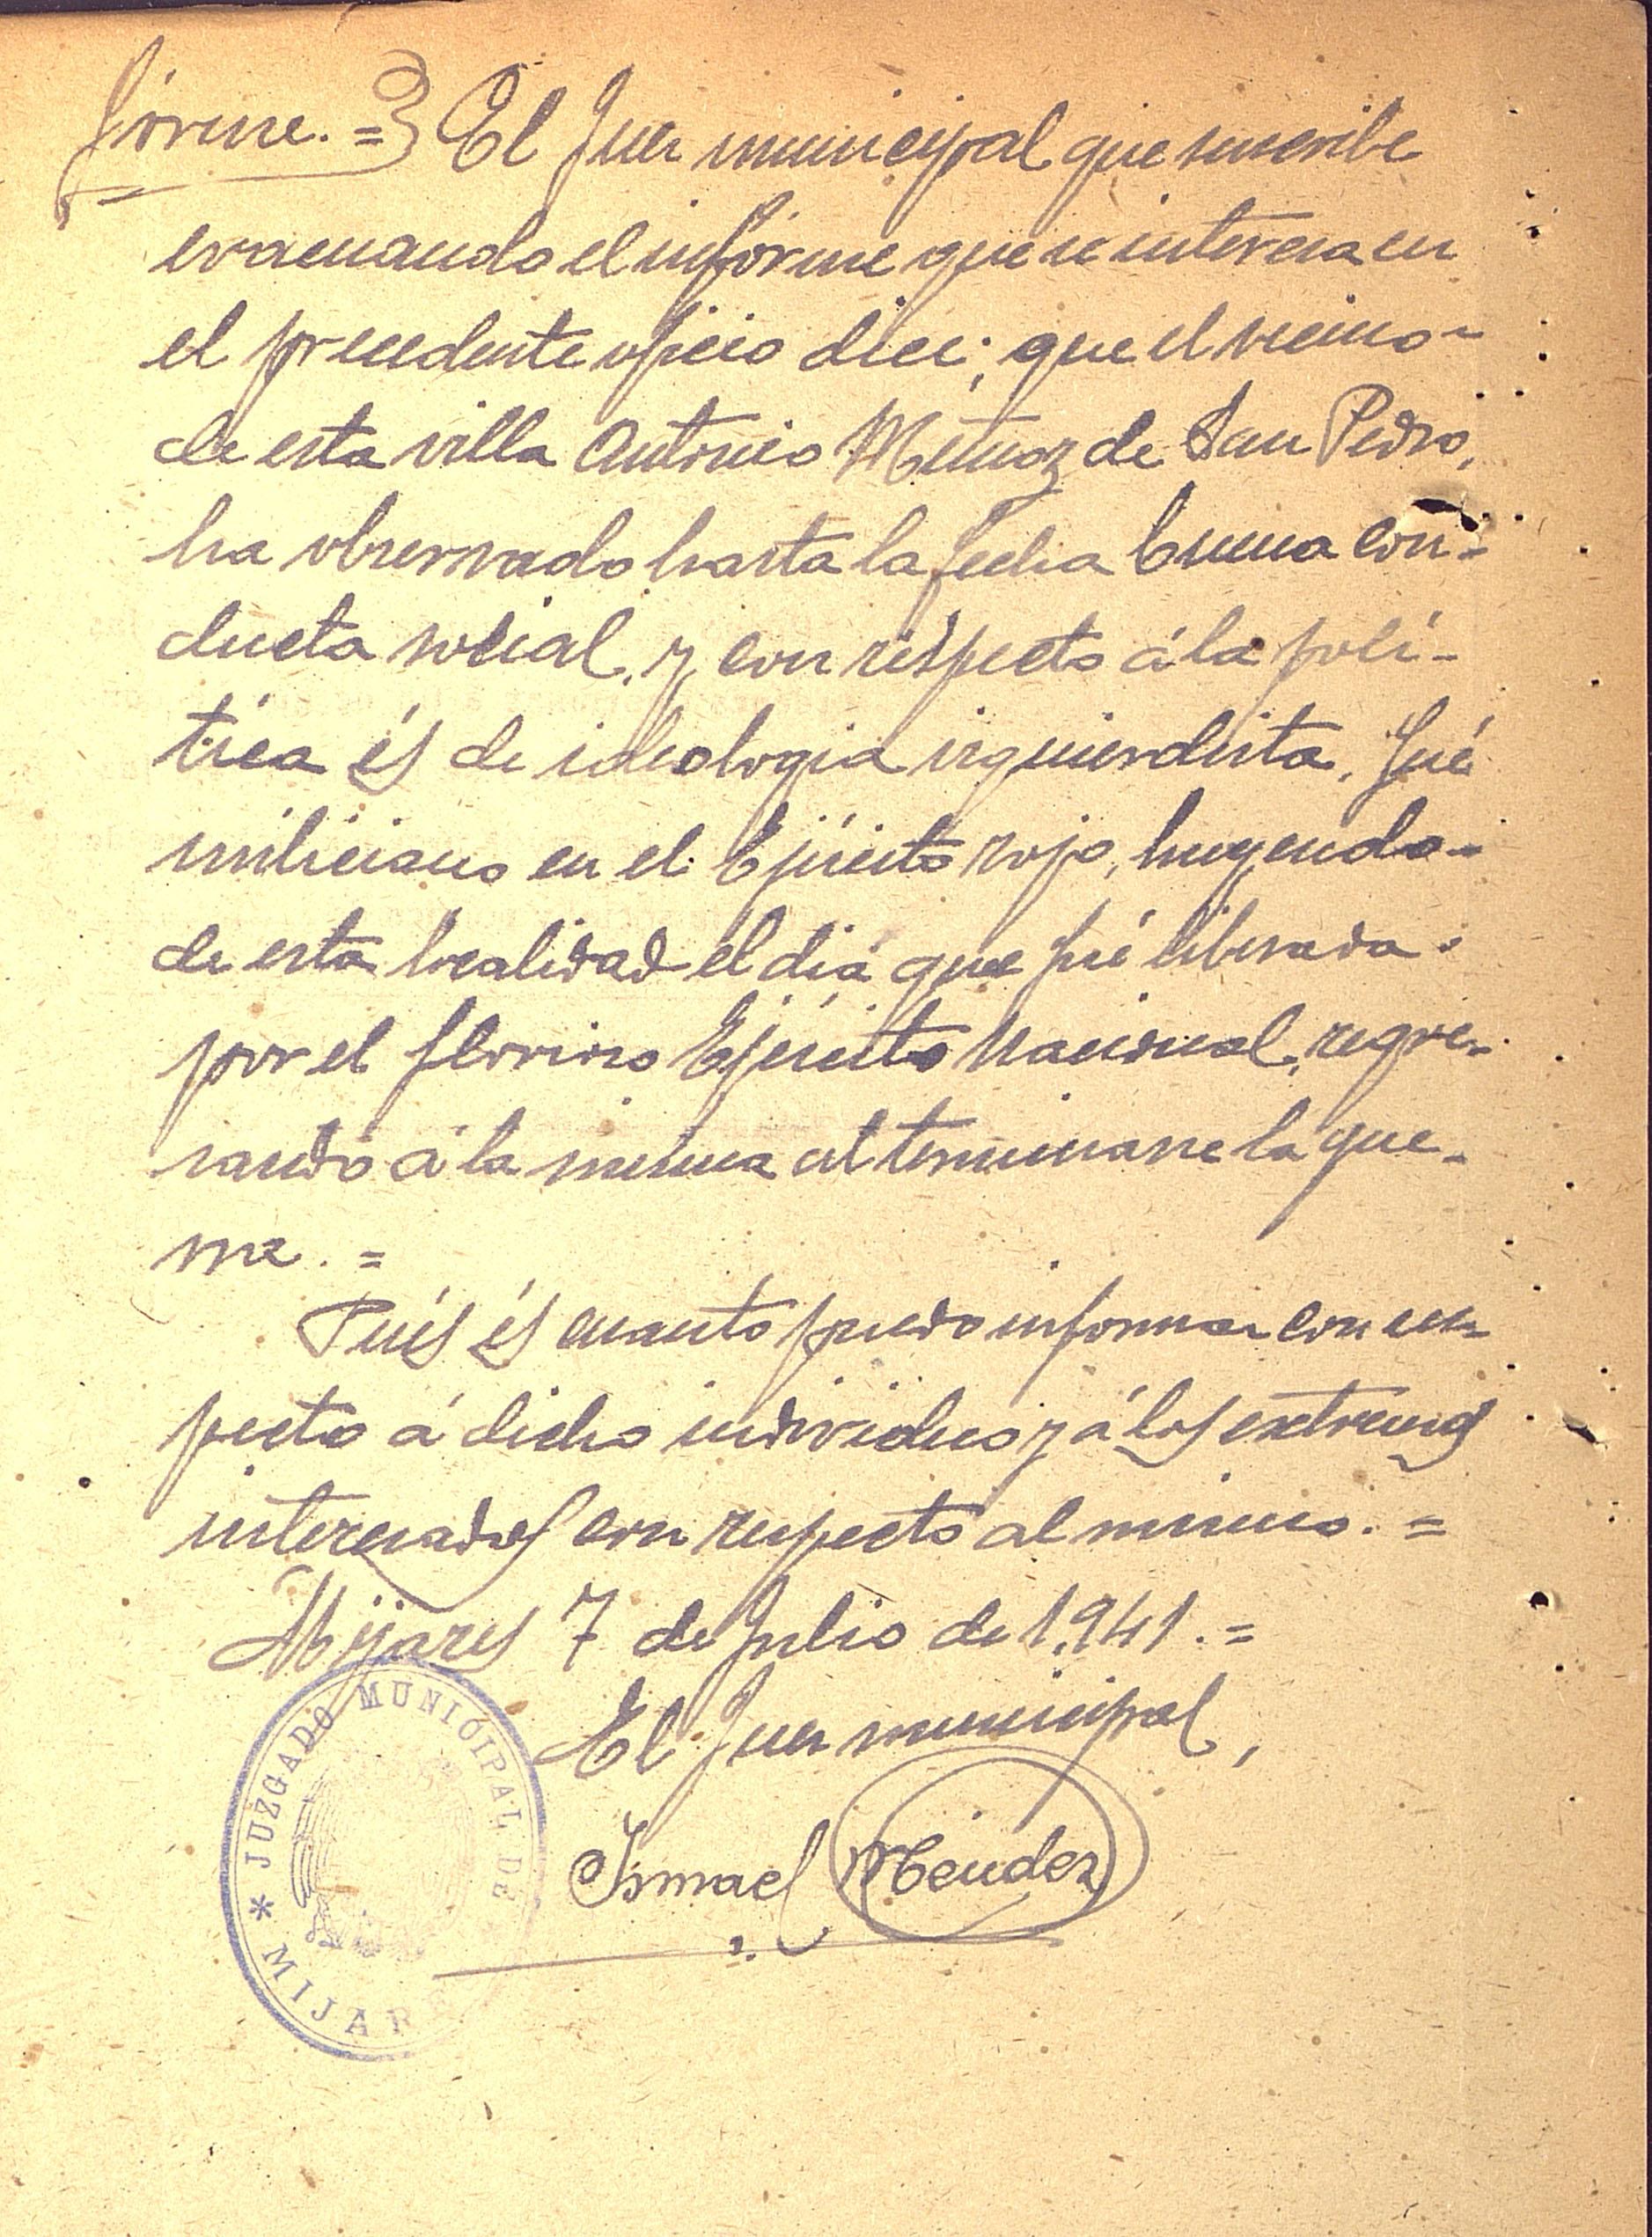 forme.= El Juez municipal que suscribe
evacuando el informe que se interesa en
el precedente oficio dice; que el vecino-
de esta villa Antonio Múñoz de San Pedro,
ha observado hasta la fecha buena con-
ducta social, y con respecto á la polí-
tica és de ideologia izquierdista, fué
miliciano en el Ejército rojo, huyendo-
de esta localidad el diá que fué liberada.
por el glorioso Ejército Nacional, regre-
sando á la misma al terminarse la gue-
rra.=
Pués és cuanto puedo informar con res-
pecto á dicho individuo y á los extremos
interesados con respecto al mismo.=
Mijares 7 de Julio de 1.941.=
El Juez municipal,
Ismael Méndez
* JUZGADO MUNICIPAL DE
MIJARE